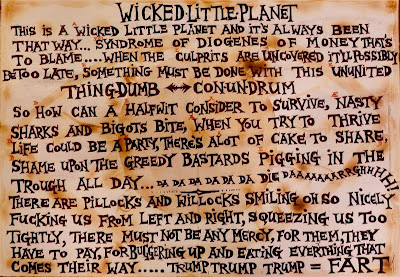 WICKED LITTLE PLANET
THIS IS A WICKED LITTLE PLANET AND IT'S ALWAYS BEEN
THAT WAY... SYNDROME OF DIOGENES OF MONEY THAT'S
TO BLAME.....WHEN THE CULPRITS ARE UNCOVERED IT'LL POSSIBLY
BE TOO LATE, SOMETHING MUST BE DONE WITH THIS UNUNITED
THING-DUMB ↔ CONUNDRUM
SO HOW CAN A HALFWIT CONSIDER TO SURVIVE, NASTY
SHARKS AND BIGOTS BITE, WHEN YOU TRY TO THRIVE
LIFE COULD BE A PARTY, THERE'S A LOT OF CAKE TO SHARE,
SHAME UPON THE GREEDY BASTARDS PIGGING IN THE
TROUGH ALL DAY... DA DA DA DA DA DA DIE DAAAAAAARRGHHHH!
THERE ARE PILLOCKS AND WILLOCKS SMILING OH SO NICELY
FUCKING US FROM LEFT AND RIGHT, SQUEEZING US TOO
TIGHTLY, THERE MUST NOT BE ANY MERCY, FOR THEM, THEY
HAVE TO PAY, FOR BUGGERING UP AND EATING EVERTHING THAT
COMES THEIR WAY...... TRUMP TRUMP TRUMP = FART